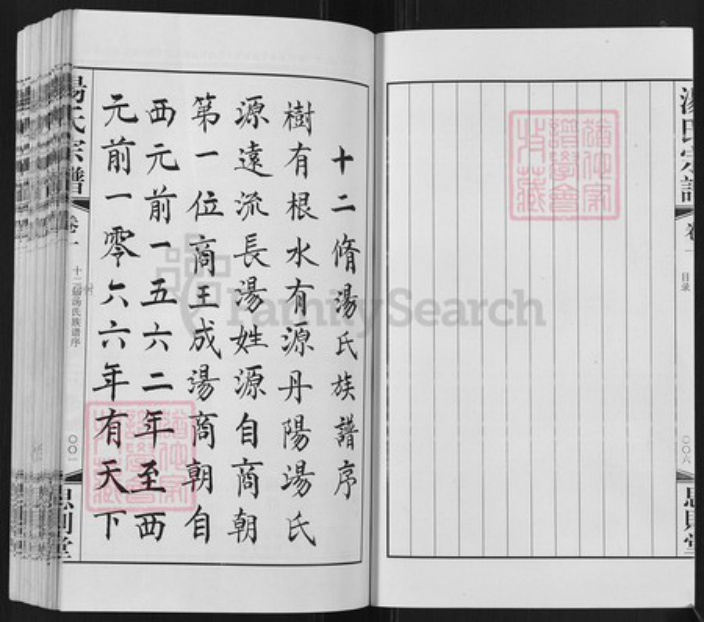 湯氏宗譜
卷一
目录
〇〇六
思則堂
十二脩湯氏族譜序
樹有根水有源丹陽湯氏
源遠流長湯姓源自商朝
第一位商王成湯商朝自
西元前一五六二年至西
元前一零六六年有天下
湯氏宗譜
卷一
十二届汤氏族谱序
〇〇一
思則堂
FamilySearch